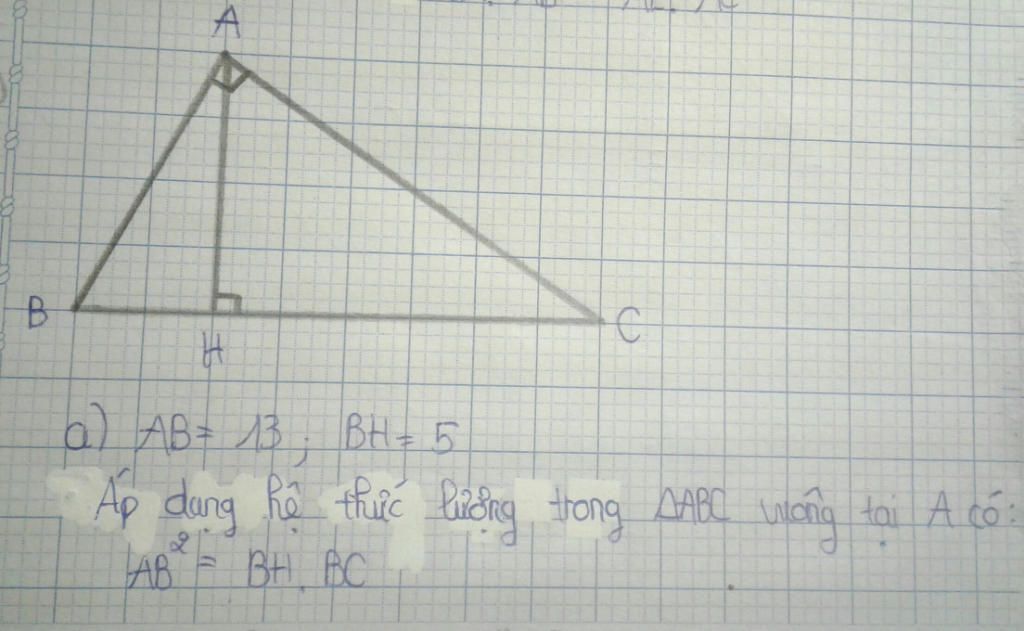 A
B
H
C
a) AB = 13 ; BH = 5
Áp dụng hệ thức lượng trong ΔABC vuông tại A có:
AB² = BH . BC